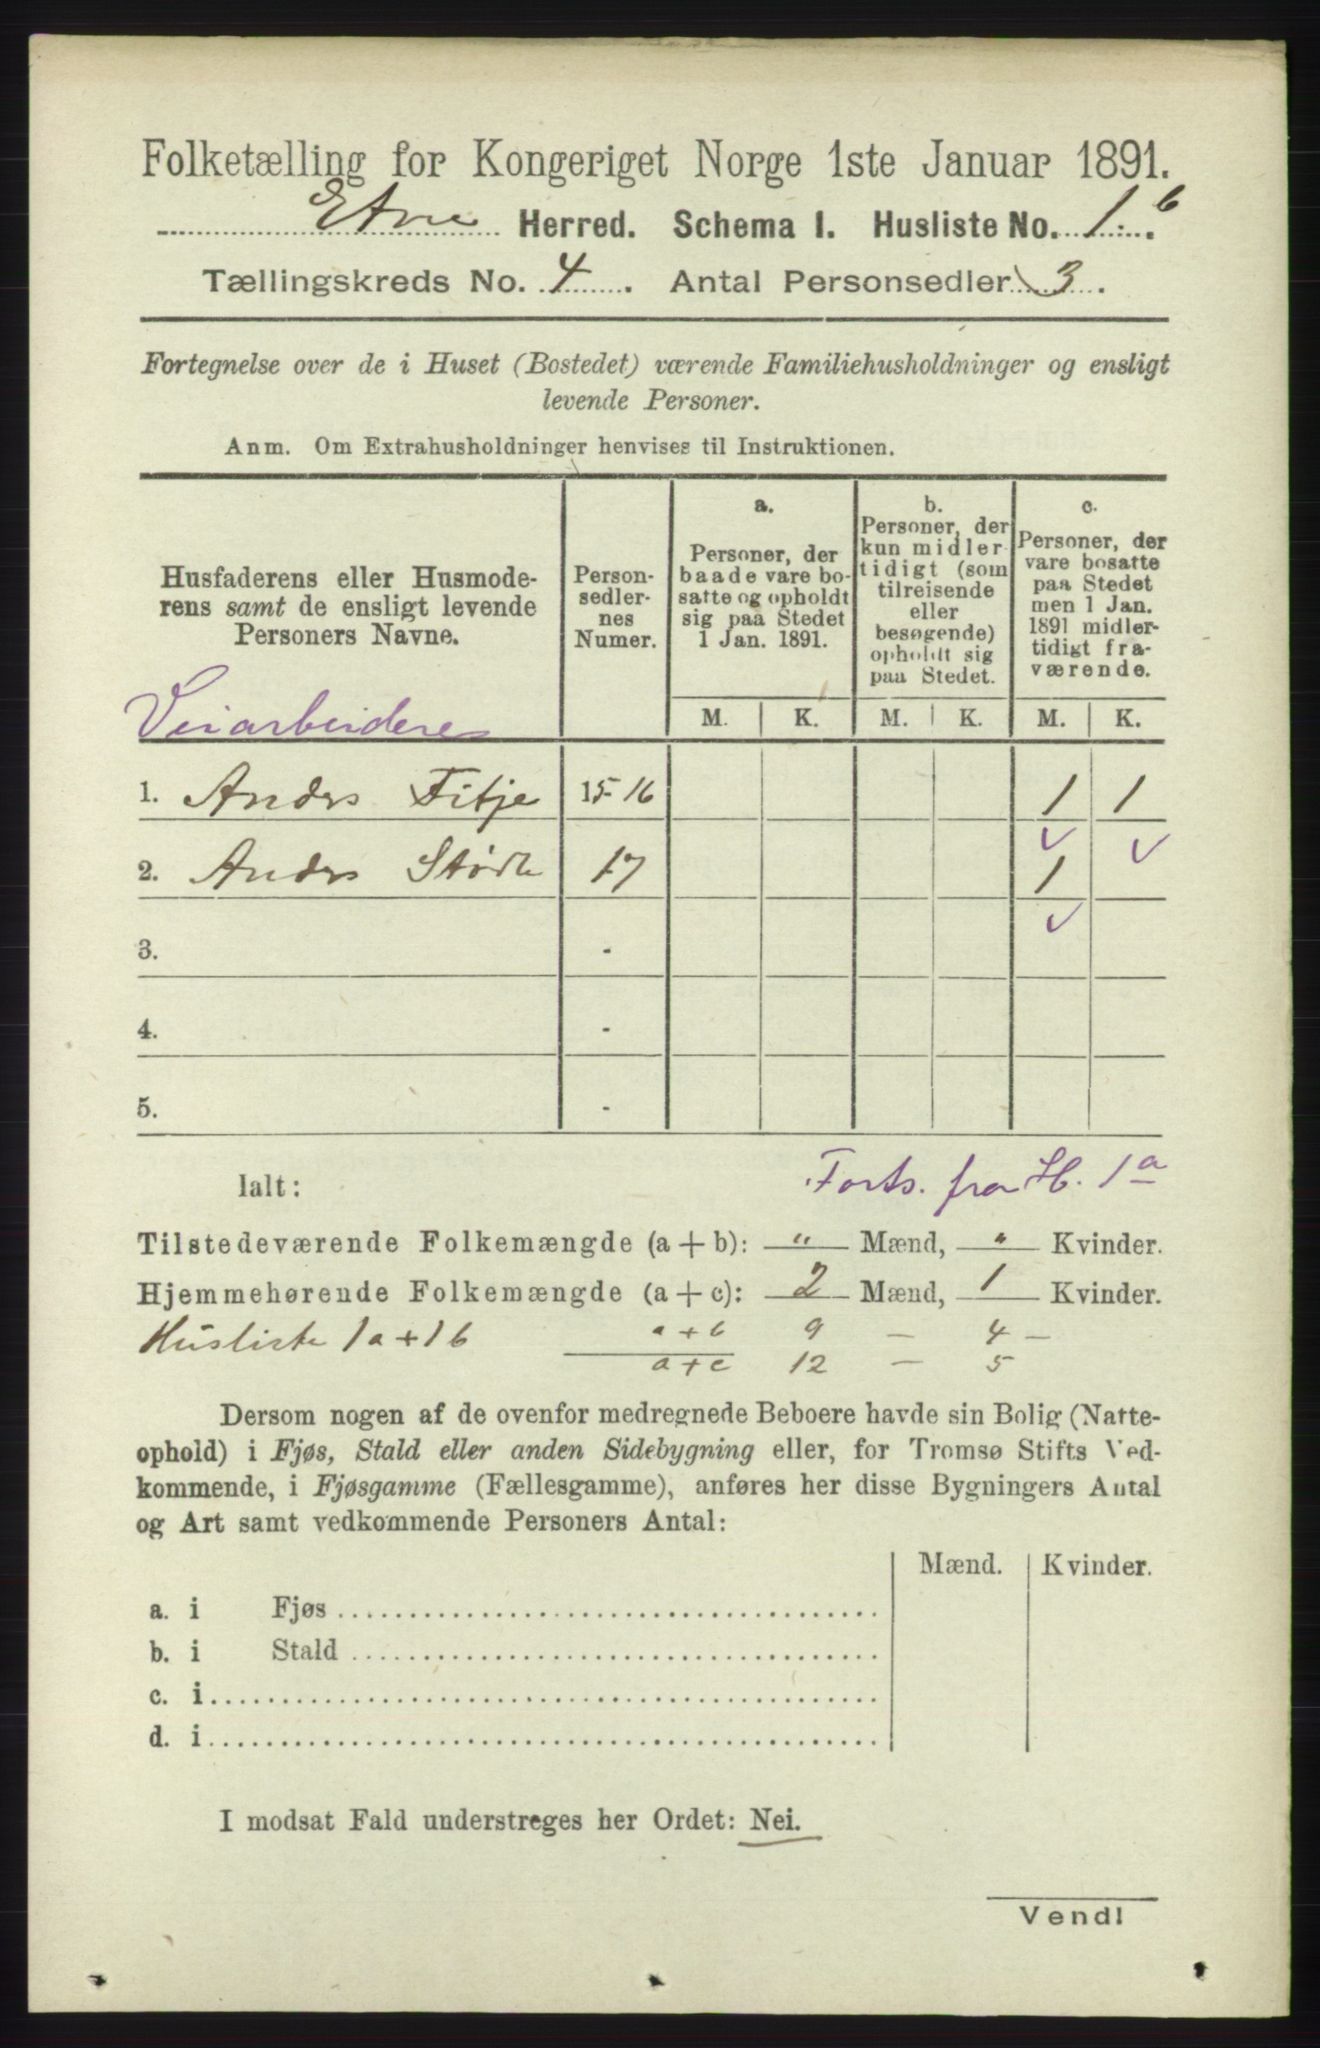 Folketælling for Kongeriget Norge 1ste Januar 1891.
Etne Herred. Schema I. Husliste No. 1 b.
Tællingskreds No. 4. Antal Personsedler 3.
Fortegnelse over de i Huset (Bostedet) værende Familiehusholdninger og ensligt
levende Personer.
Anm. Om Extrahusholdninger henvises til Instruktionen.
Husfaderens eller Husmode-
rens samt de ensligt levende
Personers Navne.
Person-
sedler-
nes
Numer.
a.
Personer, der
baade vare bo-
satte og opholdt
sig paa Stedet
1 Jan. 1891.
b.
Personer, der
kun midler-
tidigt (som
tilreisende
eller
besøgende)
opholdt sig
paa Stedet.
c.
Personer, der
vare bosatte
paa Stedet
men 1 Jan.
1891 midler-
tidigt fra-
værende.
M. K. M. K. M. K.
Veiarbeidere
1. Anders Fitje 15-16 1 1
2. Anders Stødle 17 1
3. -
4. -
5. -
Ialt: Forts. fra H. 1a
Tilstedeværende Folkemængde (a + b): " Mænd, " Kvinder.
Hjemmehørende Folkemængde (a + c): 2 Mænd, 1 Kvinder.
Husliste 1a + 1b a + b 9 — 4 —
a + c 12 — 5
Dersom nogen af de ovenfor medregnede Beboere havde sin Bolig (Natte-
ophold) i Fjøs, Stald eller anden Sidebygning eller, for Tromsø Stifts Ved-
kommende, i Fjøsgamme (Fællesgamme), anføres her disse Bygningers Antal
og Art samt vedkommende Personers Antal:
Mænd. Kvinder.
a. i Fjøs
b. i Stald
c. i
d. i
I modsat Fald understreges her Ordet: Nei.
Vend!